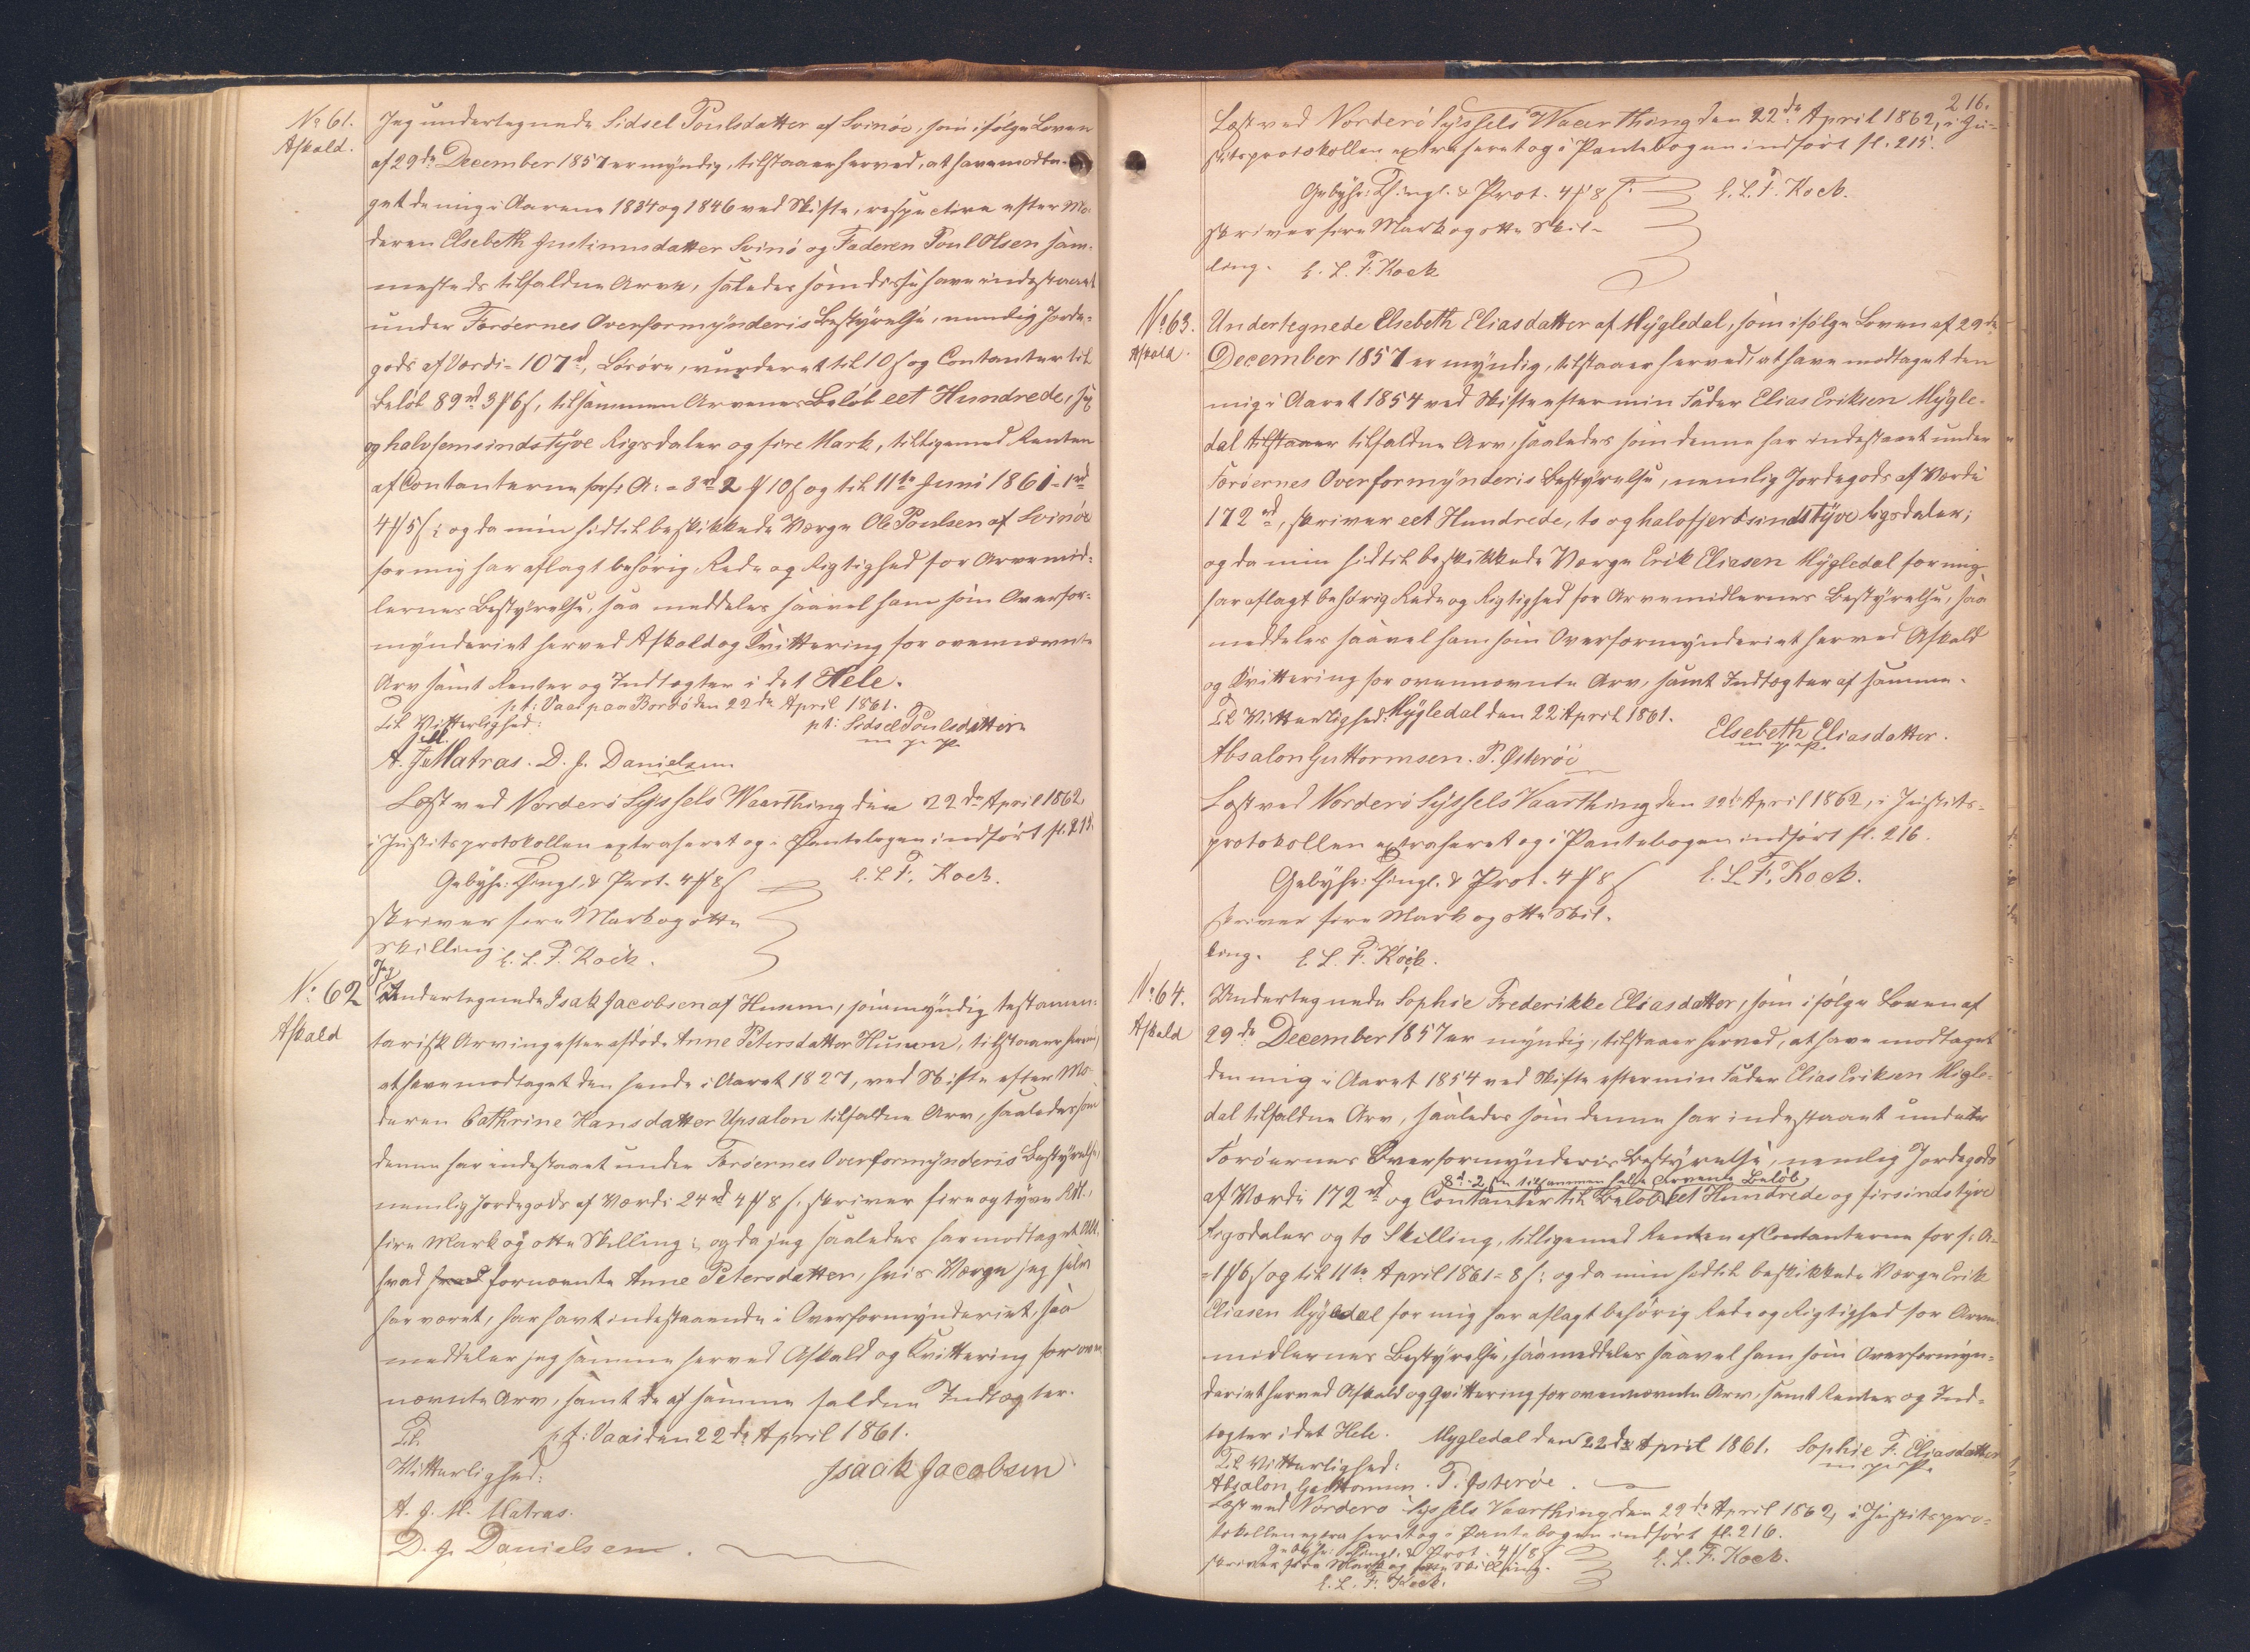 No 61.
Afkald.
Jeg undertegnede Sidsel Poulsdatter af Svinöe, som ifölge Loven
af 29de December 1857 er myndig, tilstaaer herved, at have modta-
get de mig i Aarene 1834 og 1846 ved Skifte, respective efter Mo-
deren Elsebeth Justinusdatter Svinö og Faderen Poul Olsen sam-
mesteds tilfaldne Arve, saaledes som disse have indestaaet
under Færöernes Overformynderis Bestyrelse, nemlig Jorde-
gods af Værdi = 107 rd, Lösöre, vurderet til 10 s og Contanter til
Belöb 89 rd 3 # 6 s, tilsammen Arvenes Belöb eet Hundrede, sex
og halvfemsindstyve Rigsdaler og fire Mark, tilligemed Renten
af Contanterne for f: A: = 3 rd 2 # 10 s og til 11te Juni 1861 = 1 rd
4 # 5 s; og da min hidtil beskikkede Værge Ole Poulsen af Svinöe
for mig har aflagt behörig Rede og Rigtighed for Arvemid-
lernes Bestyrelse, saa meddeles saavel ham som Overfor-
mynderiet herved Afkald og Kvittering for ovennævnte
Arv samt Renter og Indtægter i det Hele.
pt: Vaai paa Bordö den 22de April 1861.
Til Vitterlighed:
pt: Sidsel Poulsdatter
m. p. P.
A. J. M. Matras. D. J. Danielsen
Læst ved Norderö Syssels Vaarthing den 22de April 1862,
i Justitsprotokollen extraheret og i Pantebogen indfört fl. 215.
Gebyhr: Thingl. & Prot. 4 # 8 s
E. L. F. Koch.
skriver fire Mark og otte
Skilling. E. L. F. Koch.
No 62
Afkald
Jeg
Undertegnede Isak Jacobsen af Husum, som myndig testamen-
tarisk Arving efter afdöde Anne Petersdatter Husum, tilstaaer herved,
at have modtaget den hende i Aaret 1827, ved Skifte efter Mo-
deren Cathrine Hansdatter Upsalon tilfaldne Arv, saaledes som
denne har indestaaet under Færöernes Overformynderis Bestyrelse,
nemlig Jordegods af Værdi 24 rd 4 # 8 s, skriver fire og tyve Rdl.,
fire Mark og otte Skilling; og da jeg saaledes har modtaget Alt,
hvad fornævnte Anne Petersdatter, hvis Værge jeg selv
har været, har havt indestaaende i Overformynderiet, saa
meddeler jeg samme herved Afkald og Kvittering for oven-
nævnte Arv, samt de af samme faldne Indtægter.
Til
pt: Vaai den 22de April 1861.
Vitterlighed:
Isaak Jacobsen
A. J. M. Matras.
D. J. Danielsen.
216.
Læst ved Norderö Syssels Vaarthing den 22de April 1862, i Ju-
stitsprotokollen extraheret og i Pantebogen indfört fl. 215.
Gebyhr: Thingl. & Prot. 4 # 8 s.
E. L. F. Koch.
skriver fire Mark og otte Skil-
ling. E. L. F. Koch
No 63.
Afkald.
Undertegnede Elsebeth Eliasdatter af Mygledal, som ifölge Loven af 29de
December 1857 er myndig, tilstaaer herved, at have modtaget den
mig i Aaret 1854 ved Skifte efter min Fader Elias Eriksen Mygle-
dal tilstaaer tilfaldne Arv, saaledes som denne har indestaaet under
Færöernes Overformynderis Bestyrelse, nemlig Jordegods af Værdi
172 rd, skriver eet Hundrede, to og halvfjerdsindstyve Rigsdaler;
og da min hidtil beskikkede Værge Erik Eliasen Mygledal for mig
har aflagt behörig Rede og Rigtighed for Arvemidlernes Bestyrelse, saa
meddeles saavel ham som Overformynderiet herved Afkald
og Kvittering for ovennævnte Arv, samt Indtægter af samme.
Til Vitterlighed: Mygledal den 22 April 1861.
Elsebeth Eliasdatter.
m. p. P.
Absalon Guttormsen. P. Østeröe
Læst ved Norderö Syssels Vaarthing den 22de April 1862, i Justits-
protokollen extraheret og i Pantebogen indfört fl. 216.
Gebyhr: Thingl. & Prot. 4 # 8 s
E. L. F. Koch.
skriver fire Mark og otte Skil-
ling. E. L. F. Koch.
No 64.
Afkald
Undertegnede Sophie Frederikke Eliasdatter, som ifölge Loven af
29de December 1857 er myndig, tilstaaer herved, at have modtaget
den mig i Aaret 1854 ved Skifte efter min Fader Elias Eriksen Migle-
dal tilfaldne Arv, saaledes som denne har indestaaet under
Færöernes Overformynderis Bestyrelse, nemlig Jordegods
8 rd 2 s tilsammen Arvens Belöb
af Værdi 172 rd og Contanter til Belöb eet Hundrede og firsindstyve
Rigsdaler og to Skilling, tilligemed Renten af Contanterne for f: A:
= 1 # 6 s og til 11te April 1861 = 8 s; og da min hidtil beskikkede Værge Erik
Eliasen Mygledal for mig har aflagt behörig Rede og Rigtighed for Arve-
midlernes Bestyrelse, saa meddeles saavel ham som Overformyn-
deriet herved Afkald og Qvittering for ovennævnte Arv, samt Renter og Ind-
tægter i det Hele. Mygledal den 22de April 1861. Sophie F. Eliasdatter
Til Vitterlighed:
m. p. P.
Absalon Guttormsen. P. Østeröe.
Læst ved Norderö Syssels Vaarthing den 22de April 1862, i Justitspro-
tokollen extraheret og i Pantebogen indfört fl. 216.
Gebyhr: Thingl. & Prot. 4 # 8 s
skriver fire Mark og otte Skilling.
E. L. F. Koch.
E. L. F. Koch.